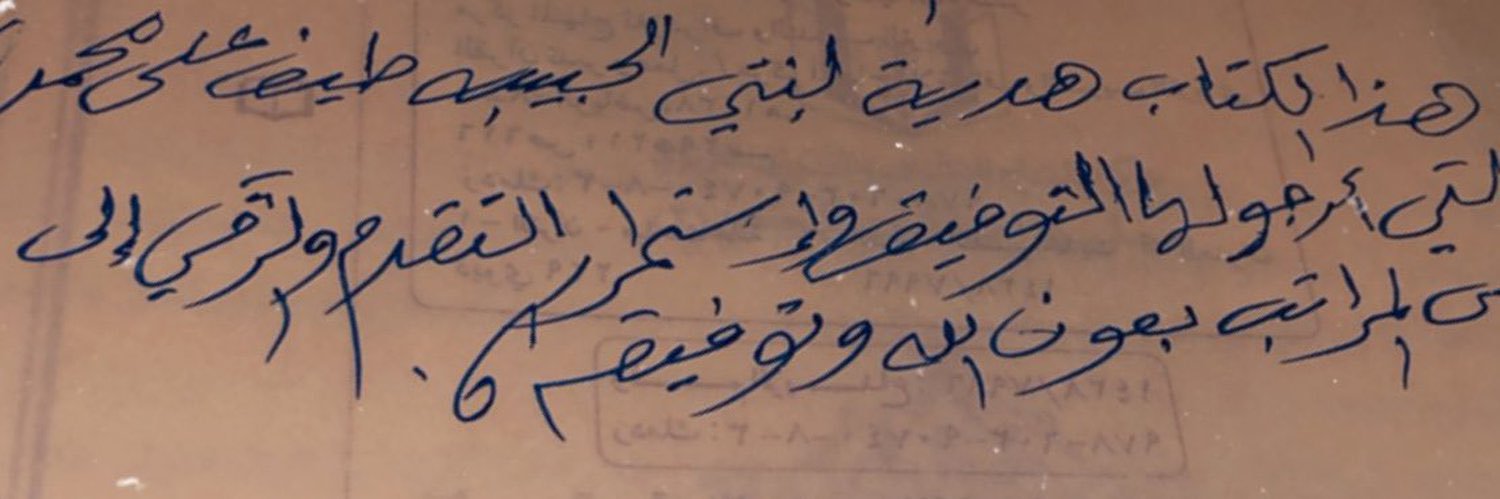 هذا الكتاب هدية لبنتي الحبيبه طيف على محمد
لتي أرجو لها التوفيق وإستمرار التقدم والرقي إلى
المراتب بعون الله وتوفيقه